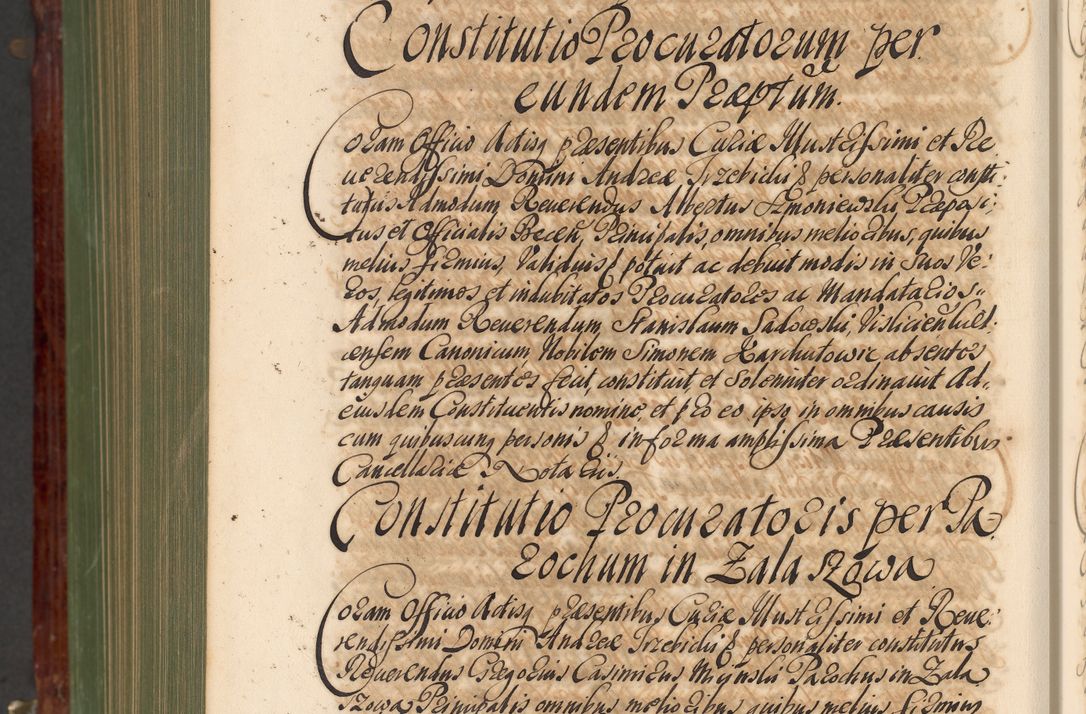 Constitutio Procuratorum per
eundem Præptum.
Coram Officio Actisq præsentibus Curiæ Illustrissimi et Re
uerendissimi Domini Andreæ Trzebicki & personaliter consti:
tutus Admodum Reuerendus Albertus Szmoniewski Præposi:
tus et Officialis Becen, Principalis, omnibus melioribus, quibus
melius firmius, validiusq potuit ac debuit modis in suos Ve:
ros, legitimos et indubitatos Procuratores ac Mandatarios
Admodum Reuerendum Stanislaum Sadowski, Visliciensem
Canonicum, Nobilem Simonem Karchutowic absentes
tanquam præsentes fecit, constituit et solenniter ordinauit Ad
eiusdem Constituentis nomine, et pro eo ipso in omnibus causis
cum quibuscunq personis & in forma amplissima Præsentibus
Cancellariæ Notariis
Constitutio Procuratoris per Pa
rochum in Zalaszowa
Coram Officio Actisq præsentibus Curiæ Illustrissimi et Reue:
rendissimi Domini Andreæ Trzebicki & personaliter constitutus
Reuerendus Gregorius Casimirus Mijnski Parochus in Zala
szowa Principalis omnibus melioribus quibus melius firmius